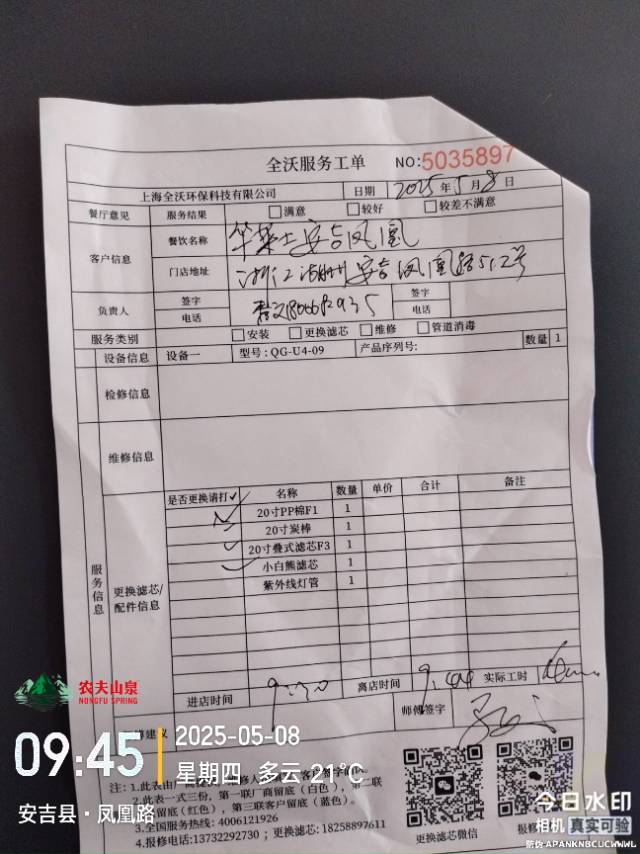 全沃服务工单 NO:5035897
上海全沃环保科技有限公司 日期 2025年5月8日
餐厅意见 服务结果 □满意 □较好 □较差不满意
客户信息 餐饮名称 华莱士安吉凤凰
门店地址 浙江湖州安吉凤凰路512号
负责人 签字 电话 签字 电话
服务类别 □安装 □更换滤芯 □维修 □管道消毒
设备信息 设备一 型号:QG-U4-09 产品序列号: 数量 1
检修信息
维修信息
服务信息
更换滤芯/配件信息
是否更换请打✓ 名称 数量 单价 合计 备注
✓ 20寸PP棉F1 1
✓ 20寸炭棒 1
✓ 20寸叠式滤芯F3 1
✓ 小白熊滤芯 1
紫外线灯管 1
进店时间 9:30 离店时间 9:40 实际工时
建议 师傅签字
农夫山泉
NONGFU SPRING
09:45
2025-05-08
星期四 多云 21°C
安吉县·凤凰路
注:1.此表由厂商提
2.此表一式三份,第一联厂商留底(白色),第二联
留底(红色),第三联客户留底(蓝色)。
3.全国服务热线:4006121926
4.报修电话:13732292730;更换滤芯:18258897611
更换滤芯微信
报修
今日水印
相机 真实可验
防伪 APANKNBCUCWWWL